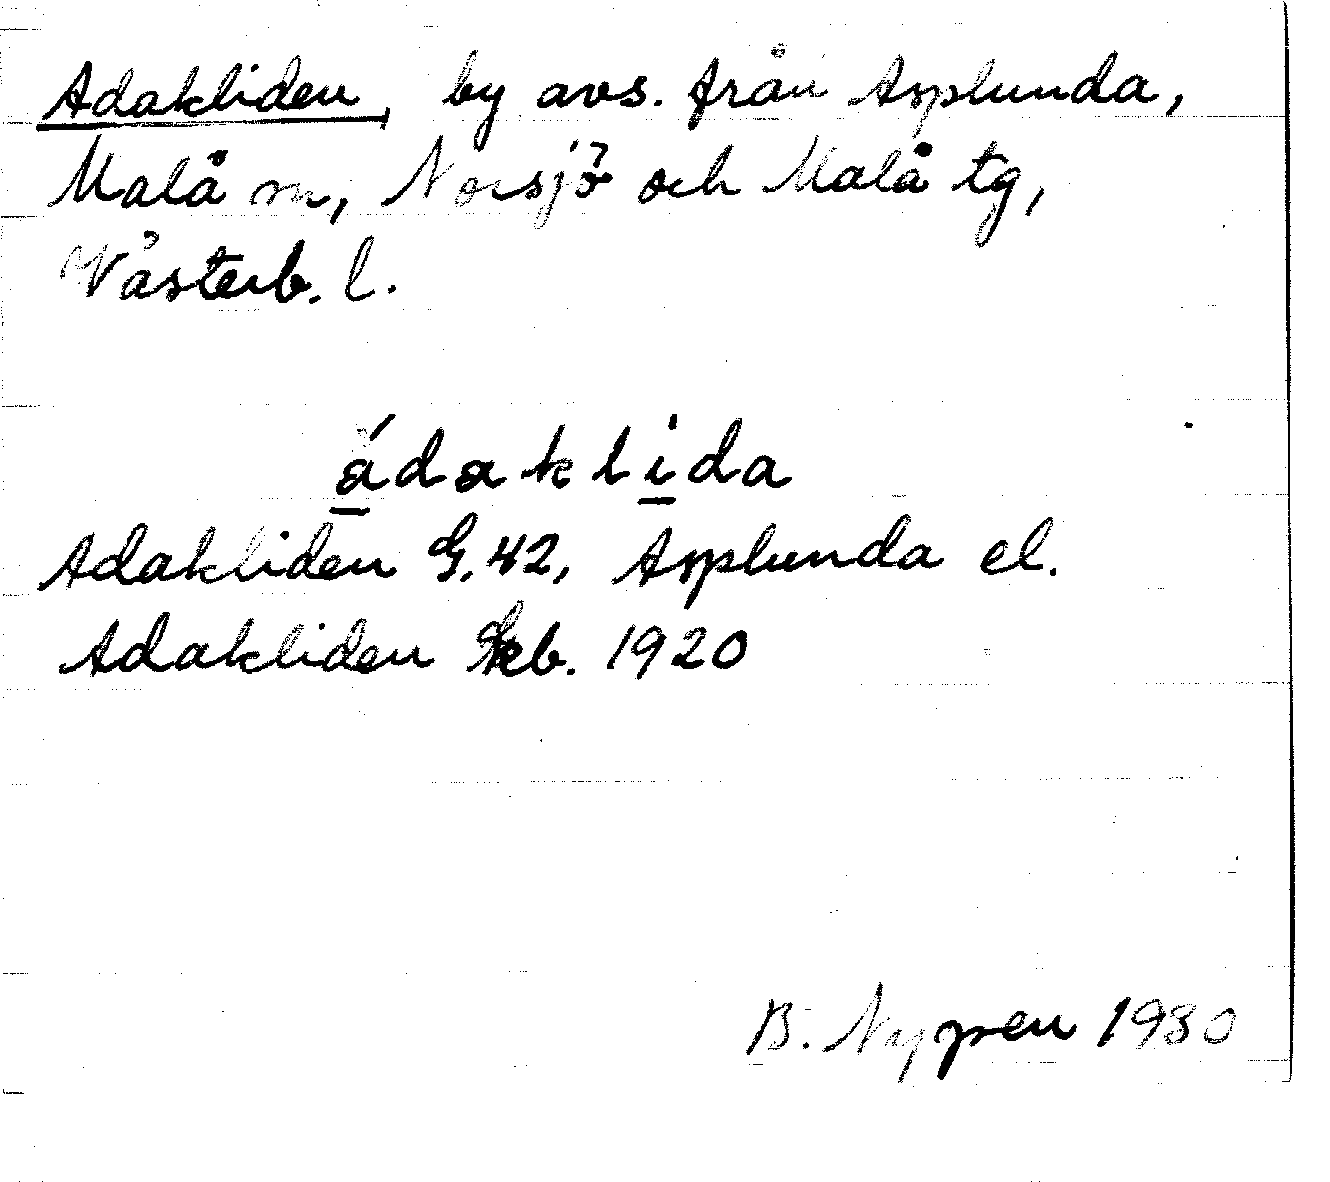 Adakliden, by avs. från Asplunda,
Malå sn, Norsjö och Malå tg,
Västerb. l.
ádaklida
Adakliden G. 42, Asplunda el.
Adakliden Skb. 1920
B. 1980